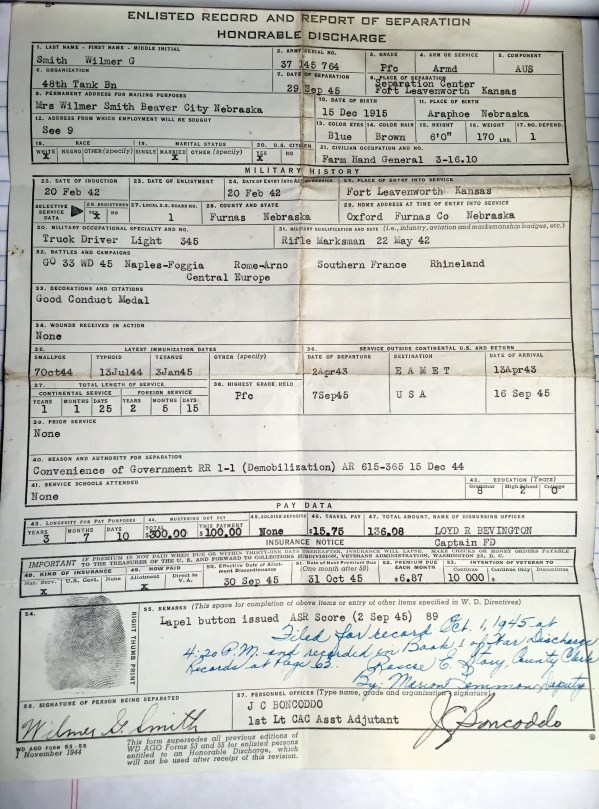 ENLISTED RECORD AND REPORT OF SEPARATION
HONORABLE DISCHARGE
1. LAST NAME - FIRST NAME - MIDDLE INITIAL 2. ARMY SERIAL NO. 3. GRADE 4. ARM OR SERVICE 5. COMPONENT
Smith Wilmer G 37 145 764 Pfc Armd AUS
6. ORGANIZATION 7. DATE OF SEPARATION 8. PLACE OF SEPARATION
48th Tank Bn 29 Sep 45 Separation Center Fort Leavenworth Kansas
9. PERMANENT ADDRESS FOR MAILING PURPOSES 10. DATE OF BIRTH 11. PLACE OF BIRTH
Mrs Wilmer Smith Beaver City Nebraska 15 Dec 1915 Araphoe Nebraska
12. ADDRESS FROM WHICH EMPLOYMENT WILL BE SOUGHT 13. COLOR EYES 14. COLOR HAIR 15. HEIGHT 16. WEIGHT 17. NO. DEPEND.
See 9 Blue Brown 6'0" 170 LBS. 1
18. RACE 19. MARITAL STATUS 20. U.S. CITIZEN 21. CIVILIAN OCCUPATION AND NO.
WHITE NEGRO OTHER (specify) SINGLE MARRIED OTHER (specify) YES NO
X X X Farm Hand General 3-16.10
MILITARY HISTORY
22. DATE OF INDUCTION 23. DATE OF ENLISTMENT 24. DATE OF ENTRY INTO ACTIVE SERVICE 25. PLACE OF ENTRY INTO SERVICE
20 Feb 42 20 Feb 42 Fort Leavenworth Kansas
SELECTIVE SERVICE DATA 26. REGISTERED YES NO 27. LOCAL S.S. BOARD NO. 28. COUNTY AND STATE 29. HOME ADDRESS AT TIME OF ENTRY INTO SERVICE
X 1 Furnas Nebraska Oxford Furnas Co Nebraska
30. MILITARY OCCUPATIONAL SPECIALTY AND NO. 31. MILITARY QUALIFICATION AND DATE (i.e., infantry, aviation and marksmanship badges, etc.)
Truck Driver Light 345 Rifle Marksman 22 May 42
32. BATTLES AND CAMPAIGNS
GO 33 WD 45 Naples-Foggia Rome-Arno Southern France Rhineland
Central Europe
33. DECORATIONS AND CITATIONS
Good Conduct Medal
34. WOUNDS RECEIVED IN ACTION
None
35. LATEST IMMUNIZATION DATES 36. SERVICE OUTSIDE CONTINENTAL U.S. AND RETURN
SMALLPOX TYPHOID TETANUS OTHER (specify) DATE OF DEPARTURE DESTINATION DATE OF ARRIVAL
7Oct44 13Jul44 3Jan45 2Apr43 E A M E T 13Apr43
37. TOTAL LENGTH OF SERVICE 38. HIGHEST GRADE HELD
CONTINENTAL SERVICE FOREIGN SERVICE
YEARS MONTHS DAYS YEARS MONTHS DAYS
1 1 25 2 5 15 Pfc 7Sep45 U S A 16 Sep 45
39. PRIOR SERVICE
None
40. REASON AND AUTHORITY FOR SEPARATION
Convenience of Government RR 1-1 (Demobilization) AR 615-365 15 Dec 44
41. SERVICE SCHOOLS ATTENDED 42. EDUCATION (Years)
None Grammar 8 High School 2 College 0
PAY DATA
43. LONGEVITY FOR PAY PURPOSES 44. MUSTERING OUT PAY 45. SOLDIER DEPOSITS 46. TRAVEL PAY 47. TOTAL AMOUNT, NAME OF DISBURSING OFFICER
YEARS MONTHS DAYS TOTAL THIS PAYMENT
3 7 10 $300.00 $100.00 None $15.75 136.08 LOYD R BEVINGTON
INSURANCE NOTICE Captain FD
IMPORTANT IF PREMIUM IS NOT PAID WHEN DUE OR WITHIN THIRTY-ONE DAYS THEREAFTER, INSURANCE WILL LAPSE. MAKE CHECKS OR MONEY ORDERS PAYABLE
TO THE TREASURER OF THE U.S. AND FORWARD TO COLLECTIONS SUBDIVISION, VETERANS ADMINISTRATION, WASHINGTON 25, D. C.
48. KIND OF INSURANCE 49. HOW PAID 50. Effective Date of Allotment Discontinuance 51. Date of Next Premium Due (One month after 50) 52. PREMIUM DUE EACH MONTH 53. INTENTION OF VETERAN TO
Nat. Serv. U.S. Govt. None Allotment Direct to V.A. Continue Continue Only Discontinue
X X 30 Sep 45 31 Oct 45 $6.87 10 000 $
54. RIGHT THUMB PRINT 55. REMARKS (This space for completion of above items or entry of other items specified in W. D. Directives)
Lapel button issued ASR Score (2 Sep 45) 89
Filed for record Oct. 1, 1945 at
4:20 P.M. and recorded in Book 1 of War Discharge
Records at Page 63. County Clerk
By: Marion Deputy
56. SIGNATURE OF PERSON BEING SEPARATED 57. PERSONNEL OFFICER (Type name, grade and organization - signature)
Wilmer G. Smith J C BONCODDO
1st Lt CAC Asst Adjutant J C Boncoddo
WD AGO FORM 53-55
1 November 1944
This form supersedes all previous editions of
WD AGO Forms 53 and 55 for enlisted persons
entitled to an Honorable Discharge, which
will not be used after receipt of this revision.